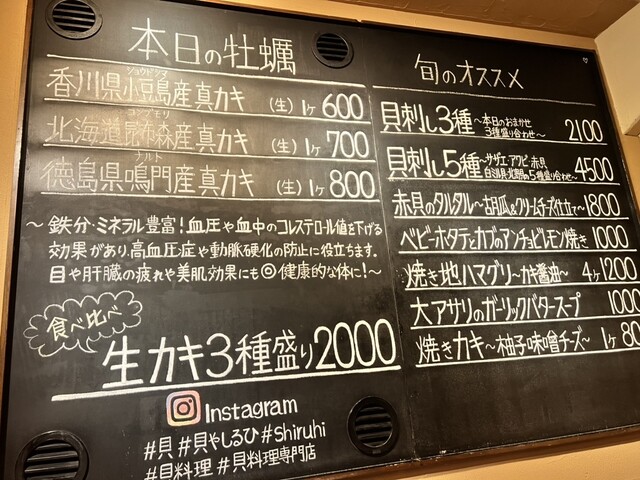 本日の牡蠣
ショウドシマ
香川県小豆島産真カキ (生) 1ヶ 600
コンブモリ
北海道昆布森産真カキ (生) 1ヶ 700
ナルト
徳島県鳴門産真カキ (生) 1ヶ 800
～鉄分・ミネラル豊富!血圧や血中のコレステロール値を下げる
効果があり、高血圧症や動脈硬化の防止に役立ちます。
目や肝臓の疲れや美肌効果にも◎健康的な体に!～
食べ比べ
生カキ3種盛り2000
Instagram
#貝 #貝やしるひ #Shiruhi
#貝料理 #貝料理専門店
旬のオススメ
貝刺し3種 ～本日のおまかせ
3種盛り合わせ～ 2100
貝刺し5種 ～サザエ・アワビ・赤貝
白ミル貝・北寄貝の5種盛り合わせ～ 4500
赤貝のタルタル～胡瓜&クリームチーズ仕立て～1800
ベビーホタテとカブのアンチョビレモン焼き 1000
焼き地ハマグリ～カキ醤油～ 4ヶ1200
大アサリのガーリックバタースープ 1000
焼きカキ～柚子味噌チーズ～ 1ヶ 80